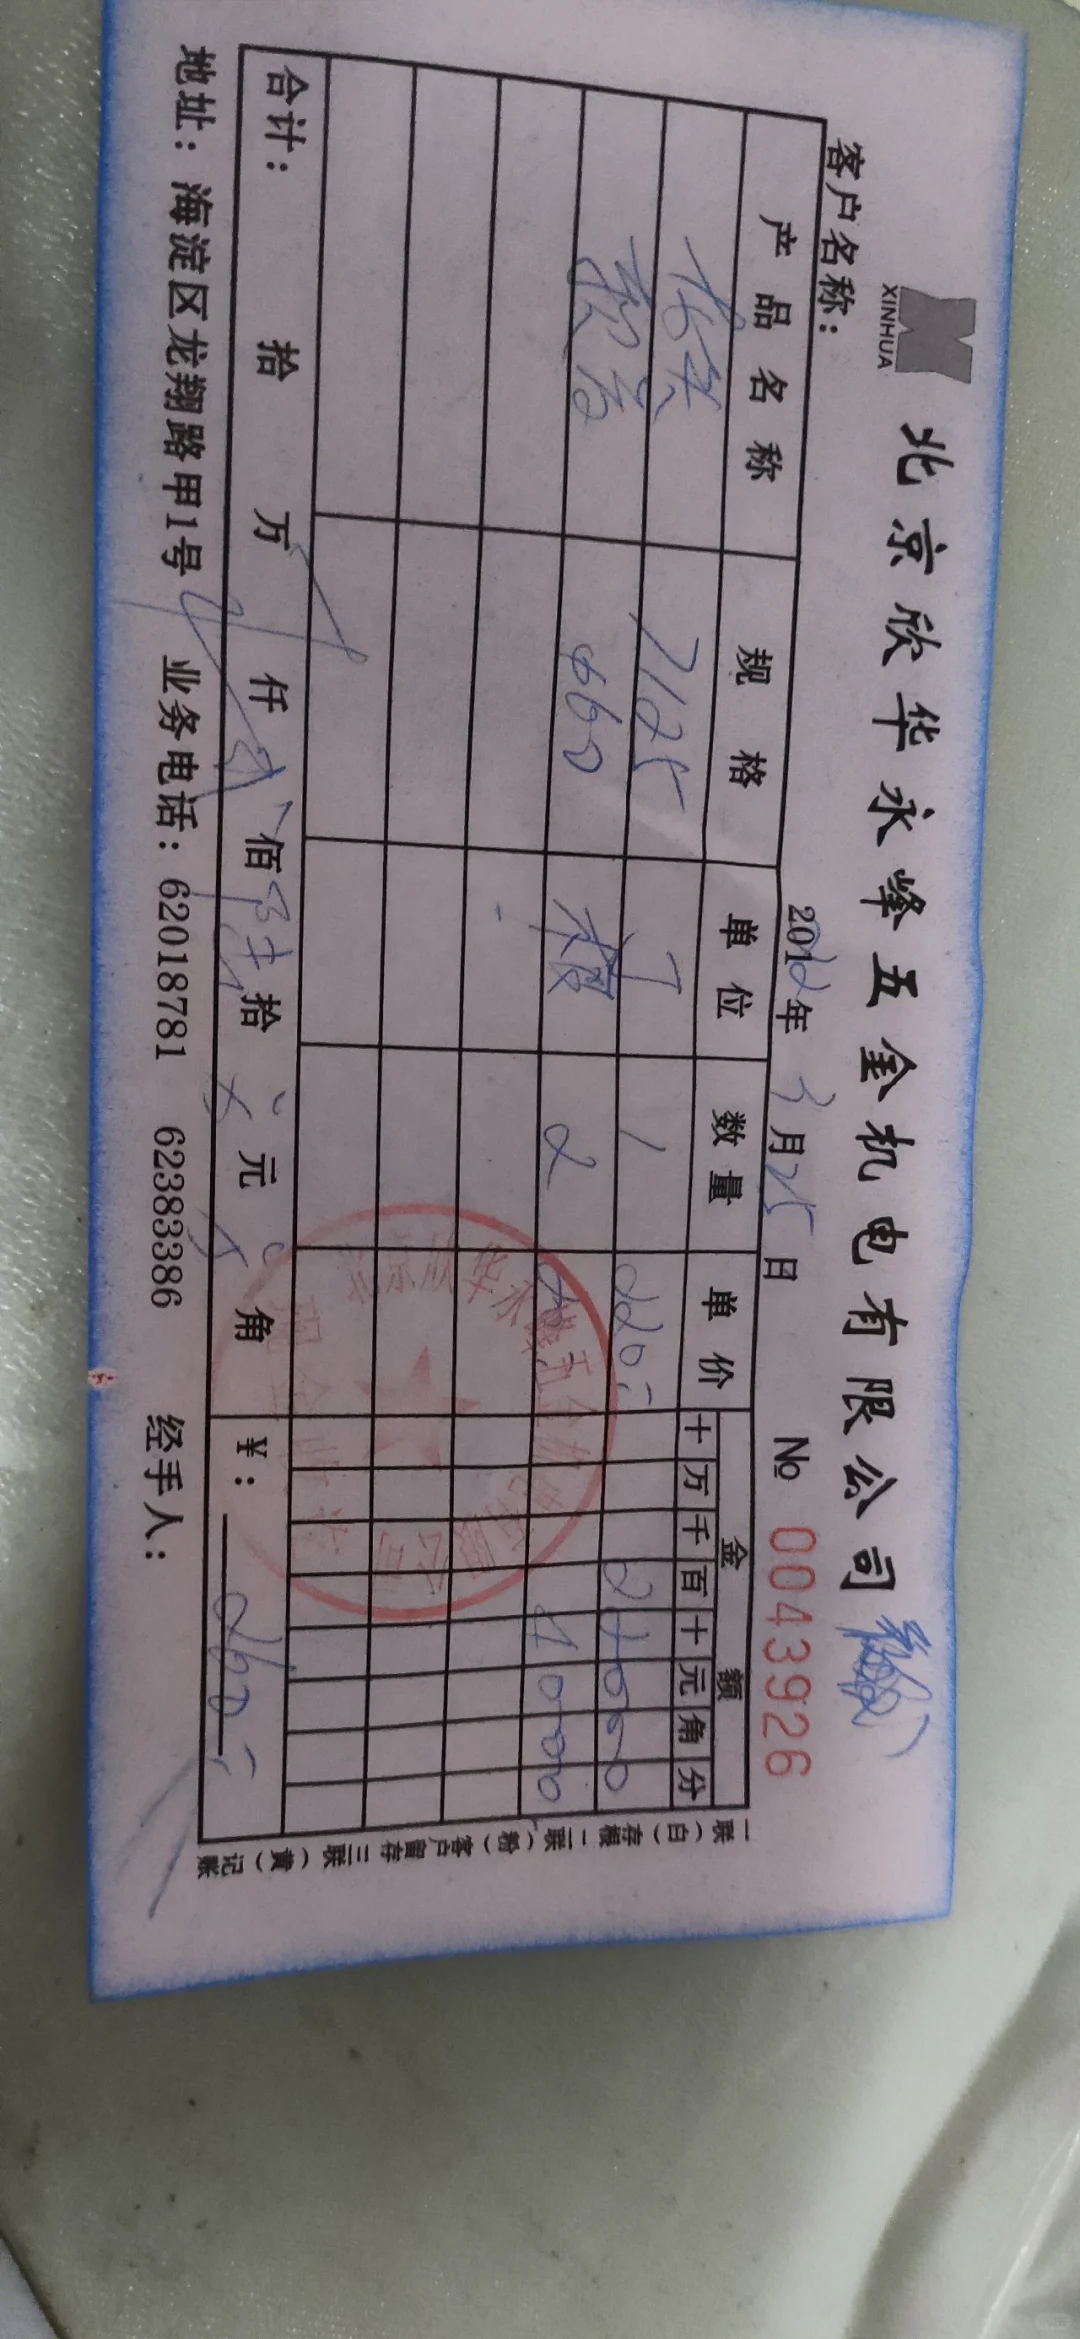 北京欣华永峰五金机电有限公司
XINHUA
客户名称：
2012年3月25日
№ 0043926
产品名称 规格 单位 数量 单价 金额
十 万 千 百 十 元 角 分
7125 1 220 2 2 0 0 0
软管 660 根 2 20 4 0 0 0
合计： 拾 万 仟 贰 佰 陆 拾 元 角 ¥： 260
地址：海淀区龙翔路甲1号 业务电话：62018781 62383386 经手人：
一联（白）存根 二联（粉）客户留存 三联（黄）记账